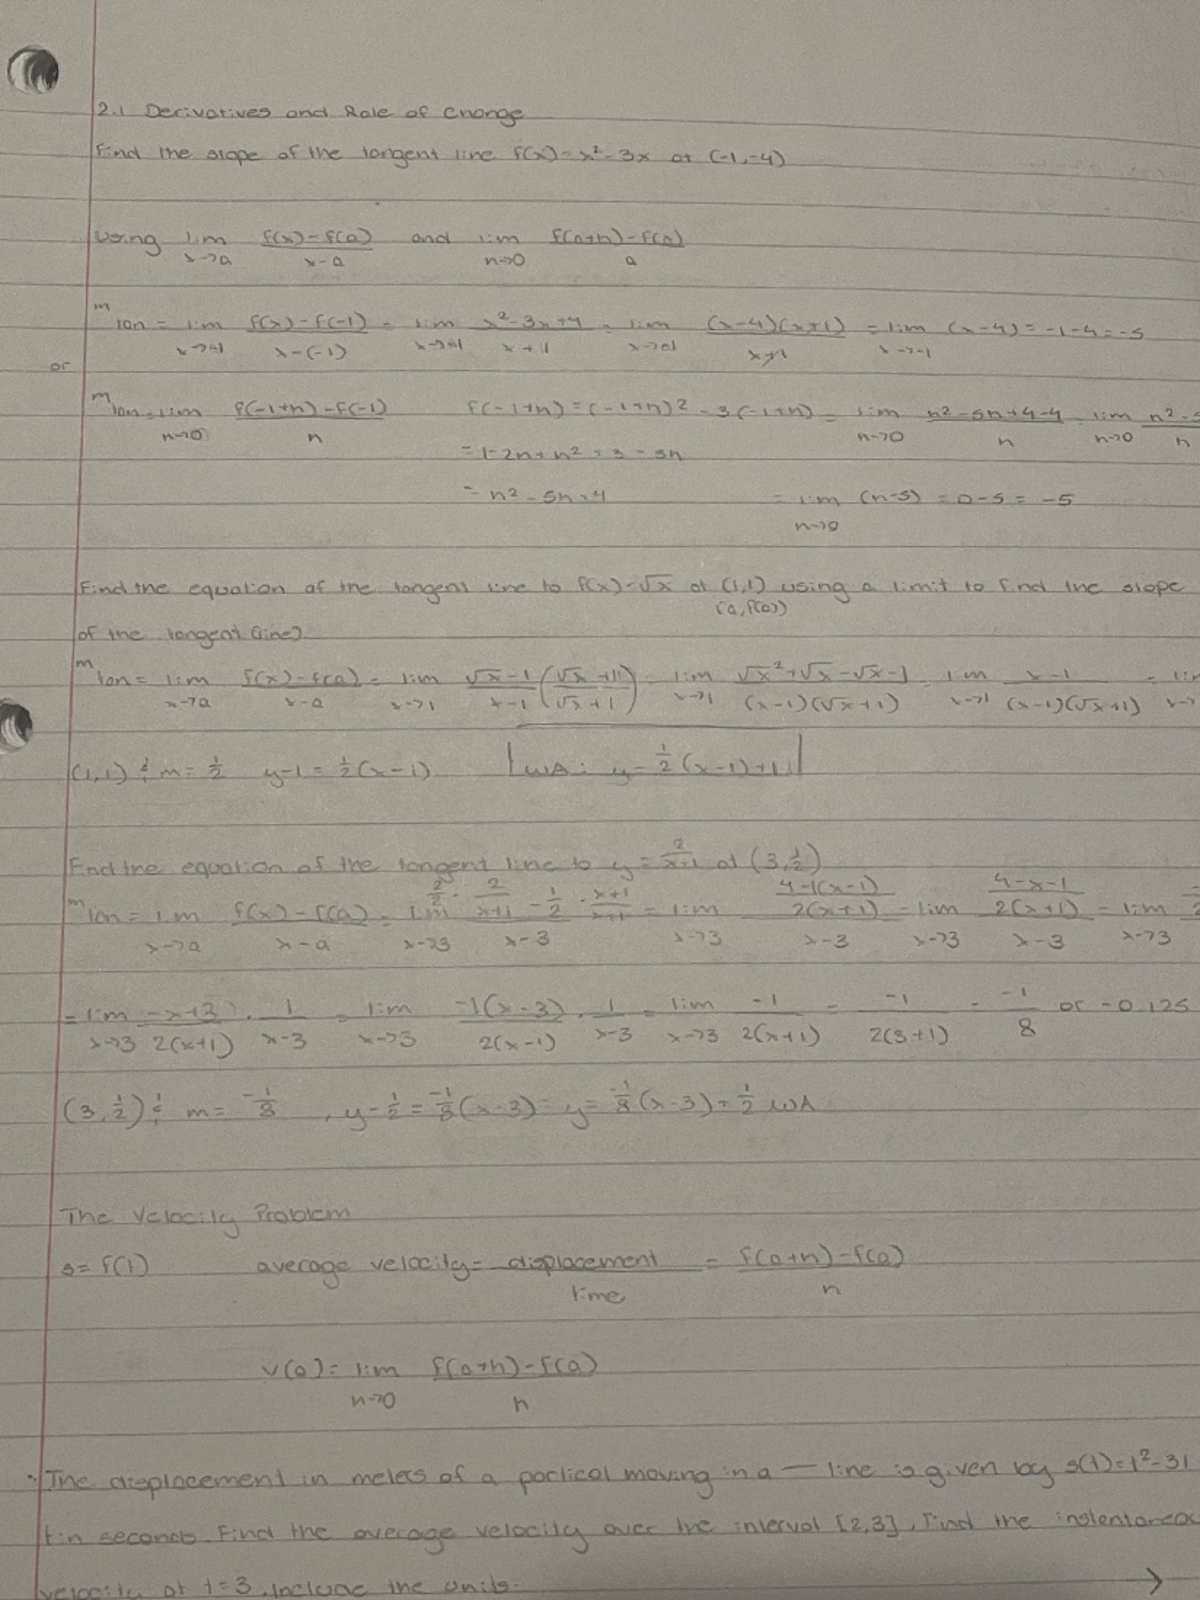 2.1 Derivatives and Rate of Change
Find the slope of the tangent line f(x)=x²-3x at (-1,-4)
Using lim x→a (f(x)-f(a))/(x-a) and lim h→0 (f(a+h)-f(a))/a
m tan = lim x→-1 (f(x)-f(-1))/(x-(-1)) = lim x→-1 (x²-3x+4)/(x+1) = lim x→-1 ((x-4)(x+1))/(x+1) = lim x→-1 (x-4) = -1-4 = -5
or
m tan = lim h→0 (f(-1+h)-f(-1))/h f(-1+h)=(-1+h)²-3(-1+h) = lim h→0 (h²-5h+4-4)/h = lim h→0 (h²-5)/h
=1-2h+h²+3-3h
= h²-5h+4 = lim h→0 (h-5) = 0-5 = -5
Find the equation of the tangent line to f(x)=√x at (1,1) using a limit to find the slope
(a,f(a))
of the tangent line)
m tan = lim x→a (f(x)-f(a))/(x-a) = lim x→1 (√x-1)/(x-1) ((√x+1)/(√x+1)) = lim x→1 (√x²+√x-√x-1)/((x-1)(√x+1)) = lim x→1 (x-1)/((x-1)(√x+1)) = lim x→
(1,1) & m=½ y-1=½(x-1) WA: y=½(x-1)+1
Find the equation of the tangent line to y=2/(x+1) at (3,½)
m tan = lim x→a (f(x)-f(a))/(x-a) = lim x→3 (2/2 · 2/(x+1) - 1/2 · (x+1)/(x+1))/(x-3) = lim x→3 ((4-1(x-1))/(2(x+1)))/(x-3) = lim x→3 ((4-x-1)/(2(x+1)))/(x-3) = lim x→3
= lim x→3 (-x+3)/(2(x+1)) · 1/(x-3) = lim x→3 (-1(x-3))/(2(x-1)) · 1/(x-3) = lim x→3 -1/(2(x+1)) = -1/(2(3+1)) = -1/8 or -0.125
(3,½) & m= -1/8 , y-½=-1/8(x-3) = y=-1/8(x-3)+½ WA
The Velocity Problem
s=f(t) average velocity= displacement/time = (f(a+h)-f(a))/h
v(a)= lim h→0 (f(a+h)-f(a))/h
·The displacement in meters of a partical moving in a — line is given by s(t)=t²-3t
t in seconds. Find the average velocity over the interval [2,3]. Find the instentaneou
velocity at t=3. Include the units. →